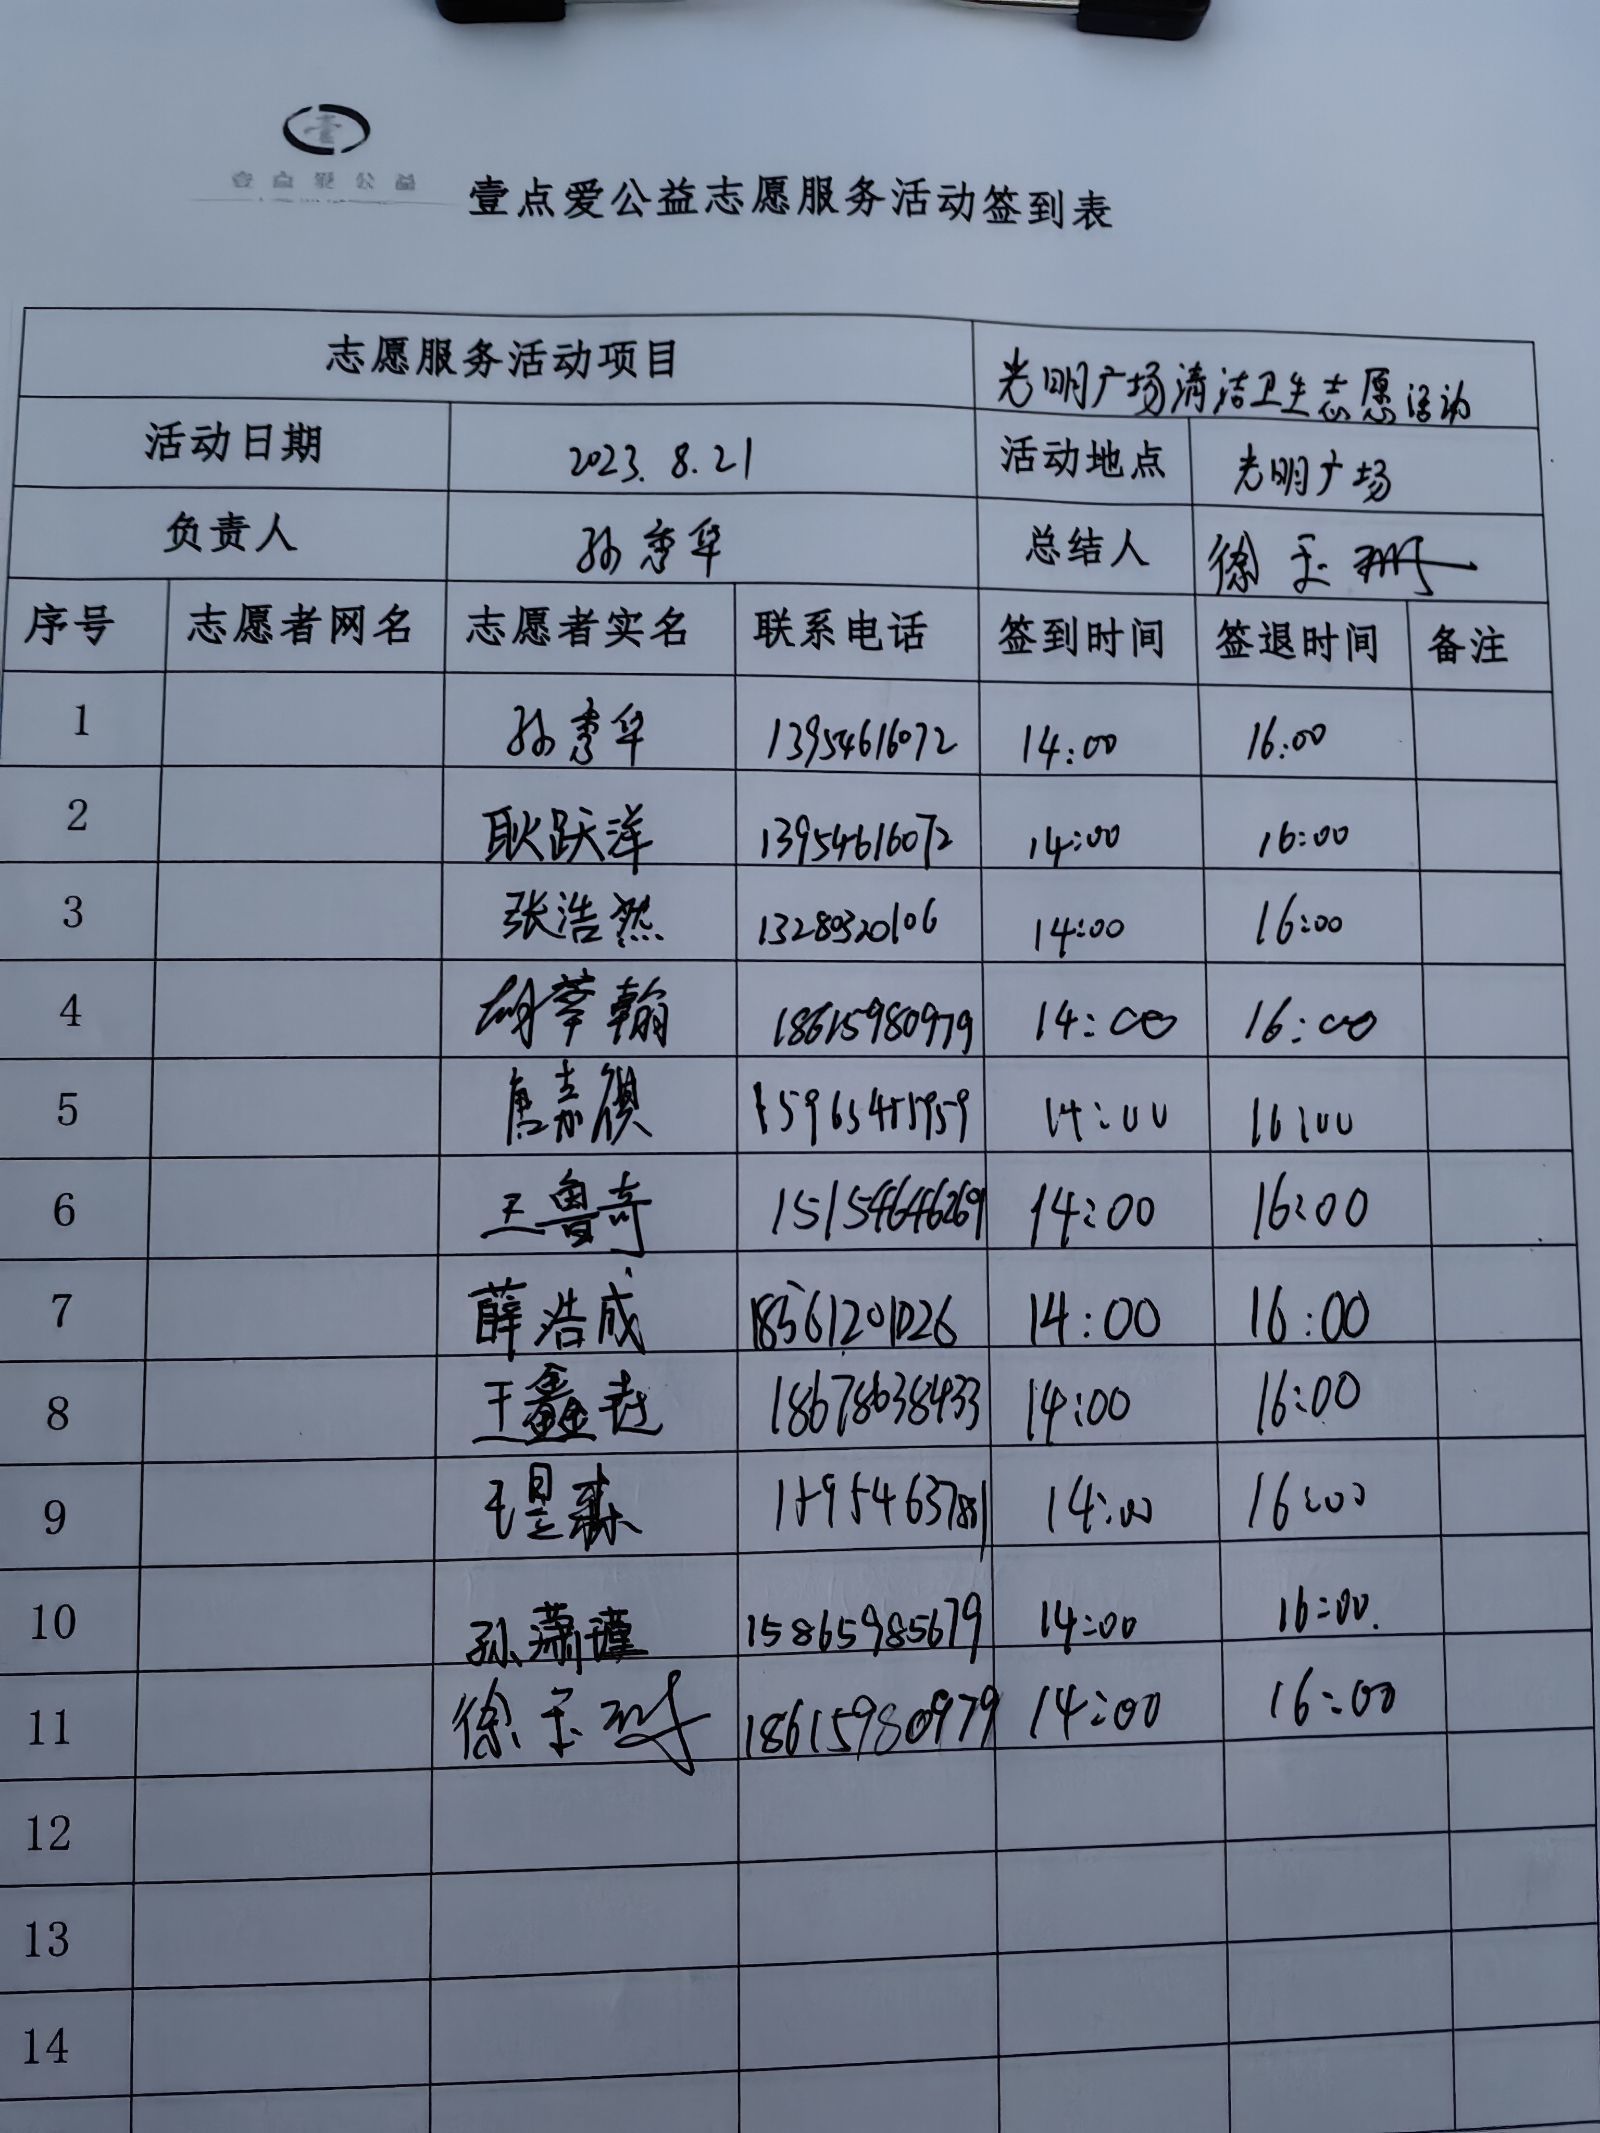 壹点爱公益
壹点爱公益志愿服务活动签到表
志愿服务活动项目 光明广场清洁卫生志愿活动
活动日期 2023.8.21 活动地点 光明广场
负责人 孙秀华 总结人 徐玉珊
序号 志愿者网名 志愿者实名 联系电话 签到时间 签退时间 备注
1 孙秀华 13954616072 14:00 16:00
2 耿跃洋 13954616072 14:00 16:00
3 张浩然 13280320106 14:00 16:00
4 胡莘翰 18615980979 14:00 16:00
5 唐嘉祺 14:00 16:00
6 王鲁奇 15154646269 14:00 16:00
7 薛浩成 18561201026 14:00 16:00
8 王鑫赵 18678638433 14:00 16:00
9 14:00 16:00
10 孙潇瑾 15865985679 14:00 16:00.
11 徐玉珊 18615980979 14:00 16:00
12
13
14